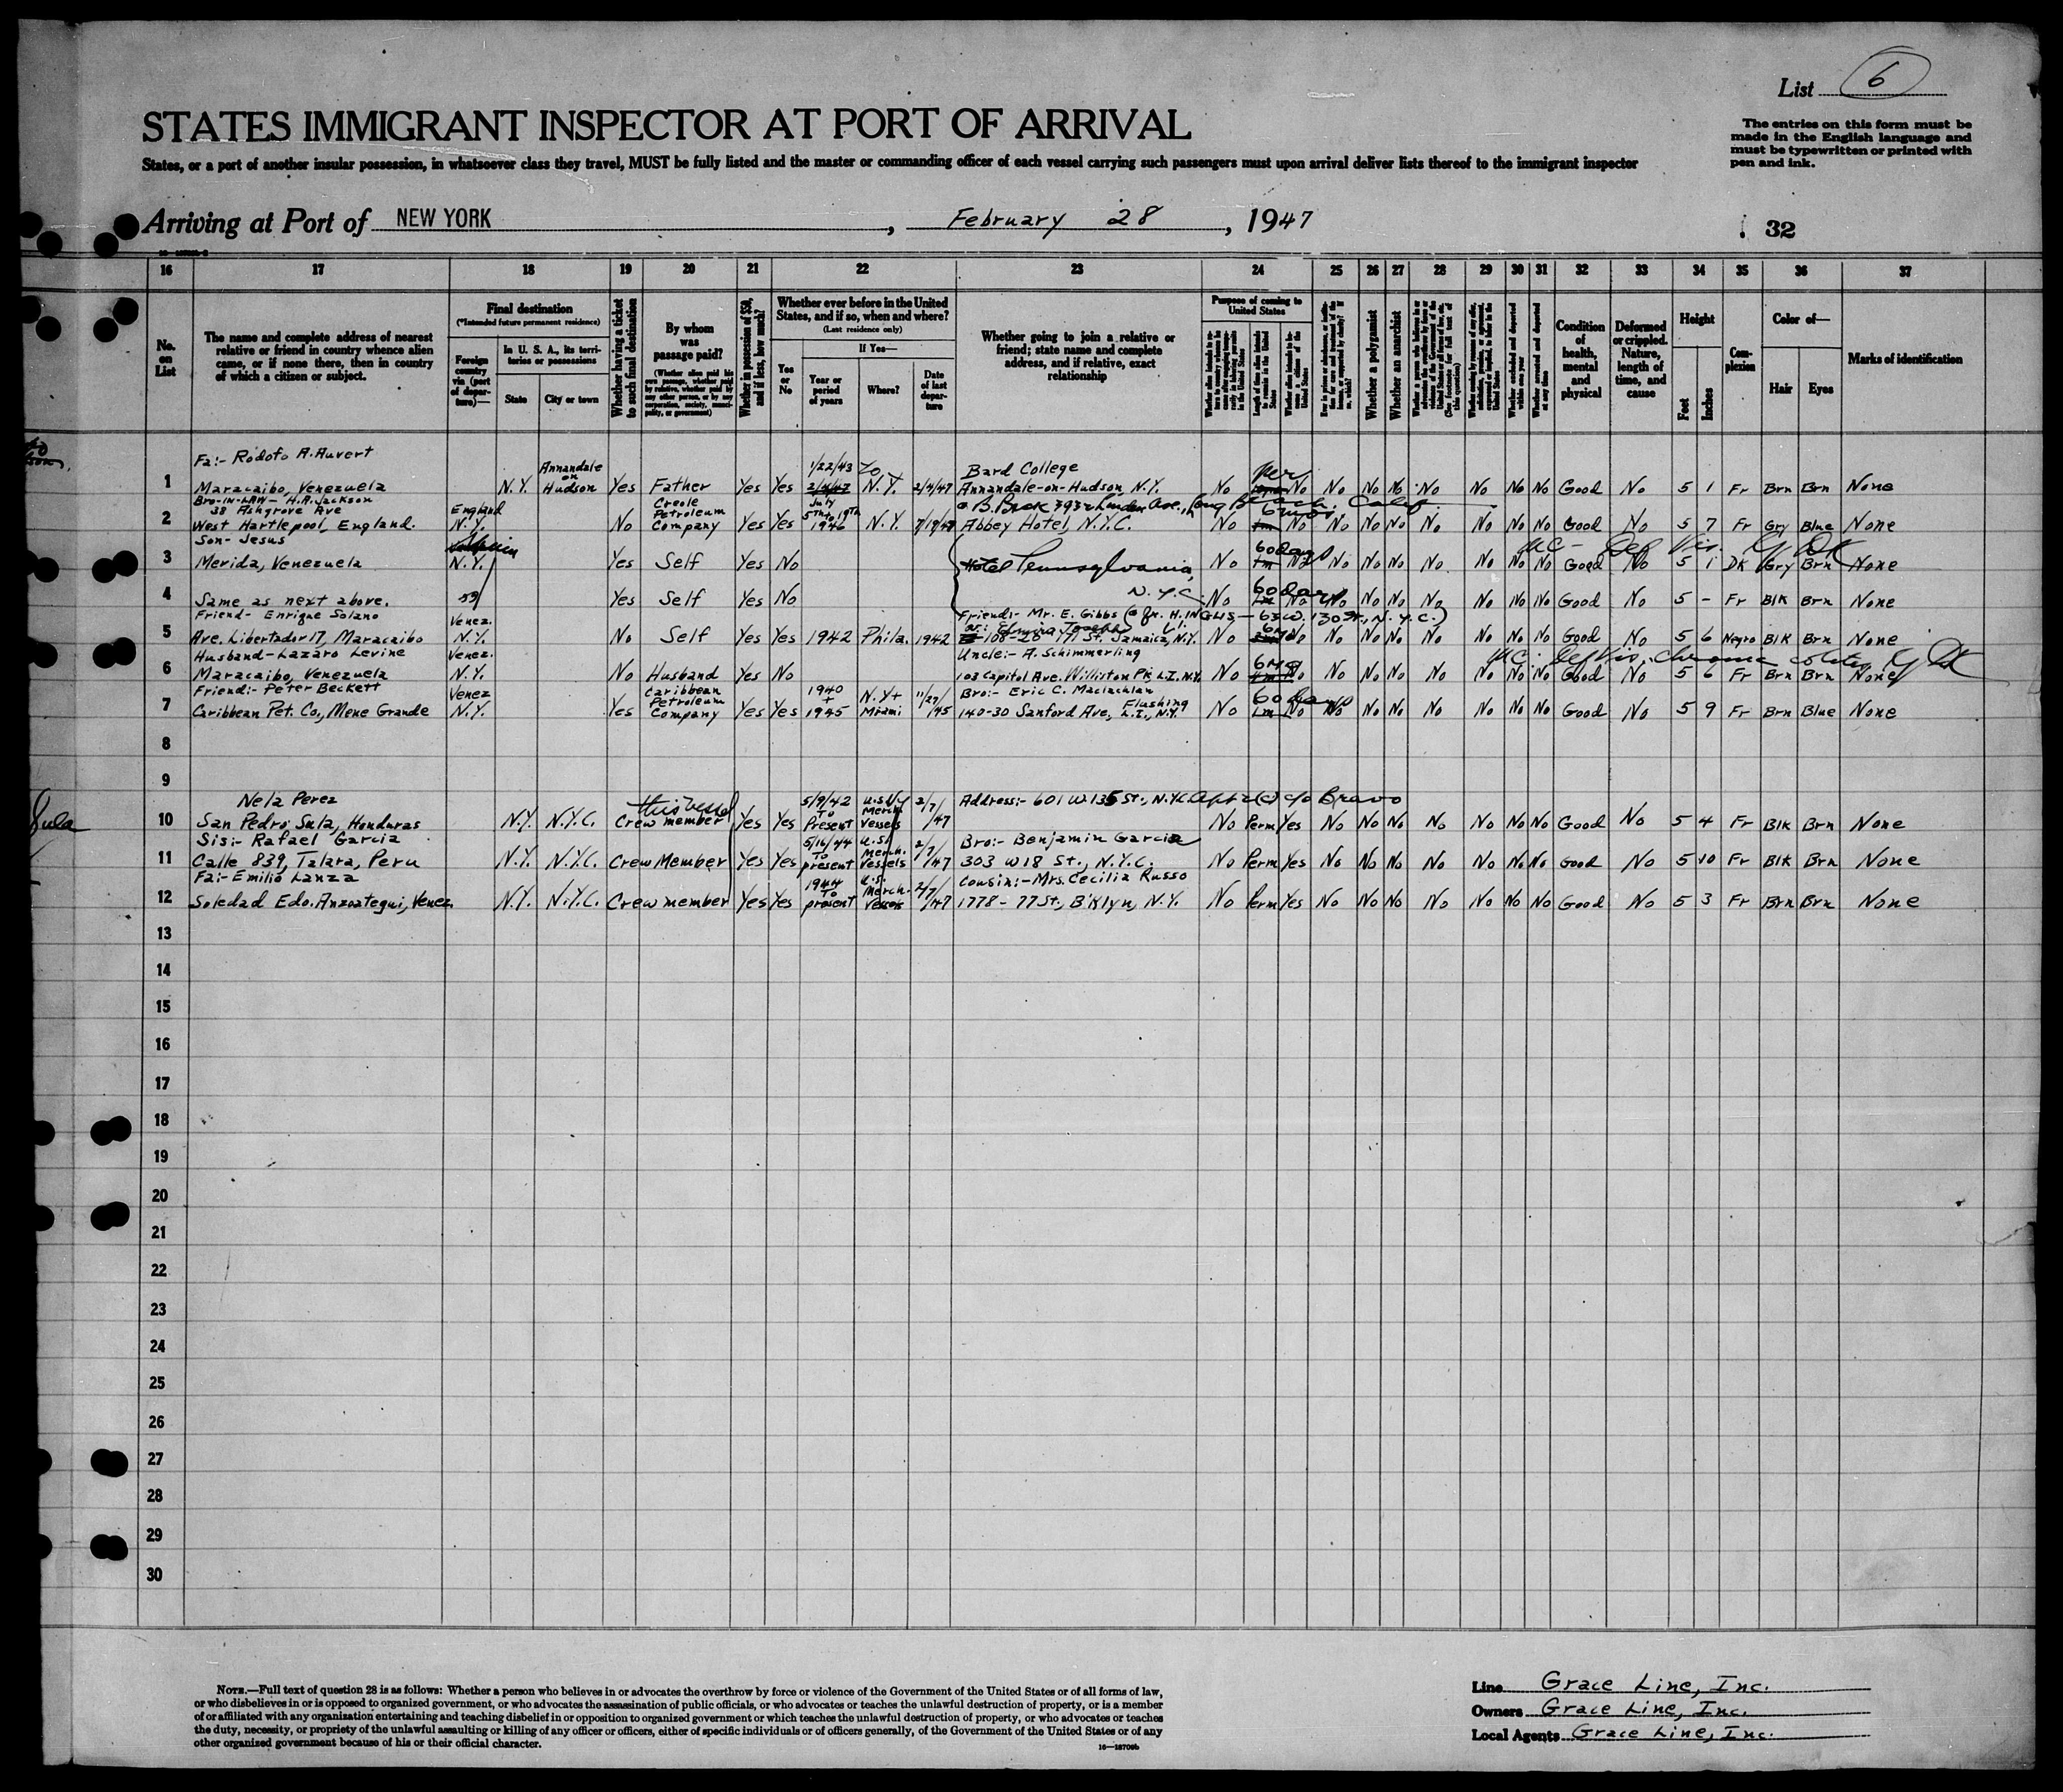 List 6
STATES IMMIGRANT INSPECTOR AT PORT OF ARRIVAL
The entries on this form must be
made in the English language and
must be typewritten or printed with
pen and ink.
States, or a port of another insular possession, in whatsoever class they travel, MUST be fully listed and the master or commanding officer of each vessel carrying such passengers must upon arrival deliver lists thereof to the immigrant inspector
Arriving at Port of NEW YORK, February 28, 1947
32
16 17 18 19 20 21 22 23 24 25 26 27 28 29 30 31 32 33 34 35 36 37
No. on List
The name and complete address of nearest
relative or friend in country whence alien
came, or if none there, then in country
of which a citizen or subject.
Final destination
(*Intended future permanent residence)
Foreign country via (port of departure)—
In U. S. A., its territories or possessions
State
City or town
Whether having a ticket to such final destination
By whom was passage paid?
(Whether alien paid his own passage, whether paid by relative, whether paid by any other person, or by any corporation, society, municipality, or government)
Whether in possession of $50, and if less, how much?
Whether ever before in the United States, and if so, when and where?
(Last residence only)
Yes or No
If Yes—
Year or period of years
Where?
Date of last departure
Whether going to join a relative or
friend; state name and complete
address, and if relative, exact
relationship
Purpose of coming to United States
Length of time alien intends to remain in the United States
Whether a polygamist
Whether an anarchist
Whether arrested and deported at any time
Condition of health, mental and physical
Deformed or crippled. Nature, length of time, and cause
Height
Feet
Inches
Complexion
Color of—
Hair
Eyes
Marks of identification
Fa:- Rodofo A. Auvert
1 Maracaibo, Venezuela N.Y. Annandale on Hudson Yes Father Yes Yes 1/22/43 To 2/4/47 N.Y. 2/4/47 Bard College Annandale-on-Hudson, N.Y. No No No No No No No No No Good No 5 1 Fr Brn Brn None
Bro-in-Law- H.A. Jackson
38 Ashgrove Ave
2 West Hartlepool, England. England N.Y. No Creole Petroleum Company Yes Yes July 5th to 19th 1946 N.Y. Abbey Hotel, N.Y.C. No 6 mos. No No No No No No No No Good No 5 7 Fr Gry Blue None
Son- Jesus
3 Merida, Venezuela N.Y. Yes Self Yes No Hotel Pennsylvania, N.Y.C. No 60 days No No No No No No No No Good No 5 1 DK Gry Brn None
4 Same as next above. Yes Self Yes No No 60 days No No No No No No No No Good No 5 - Fr Blk Brn None
Friend- Enrique Solano
5 Ave. Libertador 17, Maracaibo Venez. N.Y. No Self Yes Yes 1942 Phila. 1942 Friend:- Mr. E. Gibbs 108-28 171 St. Jamaica, N.Y. No No No No No No No No No Good No 5 6 Negro Blk Brn None
Husband- Lazaro Levine
6 Maracaibo, Venezuela Venez. N.Y. No Husband Yes No Uncle:- A. Schimmerling 103 Capitol Ave. Williston Pk L.I. N.Y. No No No No No No No No No Good No 5 6 Fr Brn Brn None
Friend:- Peter Beckett
7 Caribbean Pet. Co., Mene Grande Venez N.Y. Yes Caribbean Petroleum Company Yes Yes 1940 + 1945 N.Y. + Miami 11/29/45 Bro:- Eric C. Maclachlan 140-30 Sanford Ave, Flushing L.I., N.Y. No 60 days No No No No No No No No Good No 5 9 Fr Brn Blue None
8
9
Nela Perez
10 San Pedro Sula, Honduras N.Y. N.Y.C. this vessel Crew member Yes Yes 5/9/42 To Present Merch Vessels 2/7/47 Address:- 601 W 135 St., N.Y.C. c/o Bravo No Perm Yes No No No No No No No Good No 5 4 Fr Blk Brn None
Sis:- Rafael Garcia
11 Calle 839, Talara, Peru N.Y. N.Y.C. Crew Member Yes Yes 5/16/44 To present U.S. Merch. Vessels 2/7/47 Bro:- Benjamin Garcia 303 W 18 St., N.Y.C. No Perm Yes No No No No No No No Good No 5 10 Fr Blk Brn None
Fa:- Emilio Lanza
12 Soledad Edo. Anzoategui, Venez. N.Y. N.Y.C. Crew member Yes Yes 1944 To present U.S. Merch. Vessels 2/7/47 Cousin:- Mrs. Cecilia Russo 1778 - 77 St., B'klyn, N.Y. No Perm Yes No No No No No No No Good No 5 3 Fr Brn Brn None
13
14
15
16
17
18
19
20
21
22
23
24
25
26
27
28
29
30
NOTE.—Full text of question 28 is as follows: Whether a person who believes in or advocates the overthrow by force or violence of the Government of the United States or of all forms of law,
or who disbelieves in or is opposed to organized government, or who advocates the assassination of public officials, or who advocates or teaches the unlawful destruction of property, or is a member
of or affiliated with any organization entertaining and teaching disbelief in or opposition to organized government or which teaches the unlawful destruction of property, or who advocates or teaches
the duty, necessity, or propriety of the unlawful assaulting or killing of any officer or officers, either of specific individuals or of officers generally, of the Government of the United States or of any
other organized government because of his or their official character.
Line Grace Line, Inc.
Owners Grace Line, Inc.
Local Agents Grace Line, Inc.